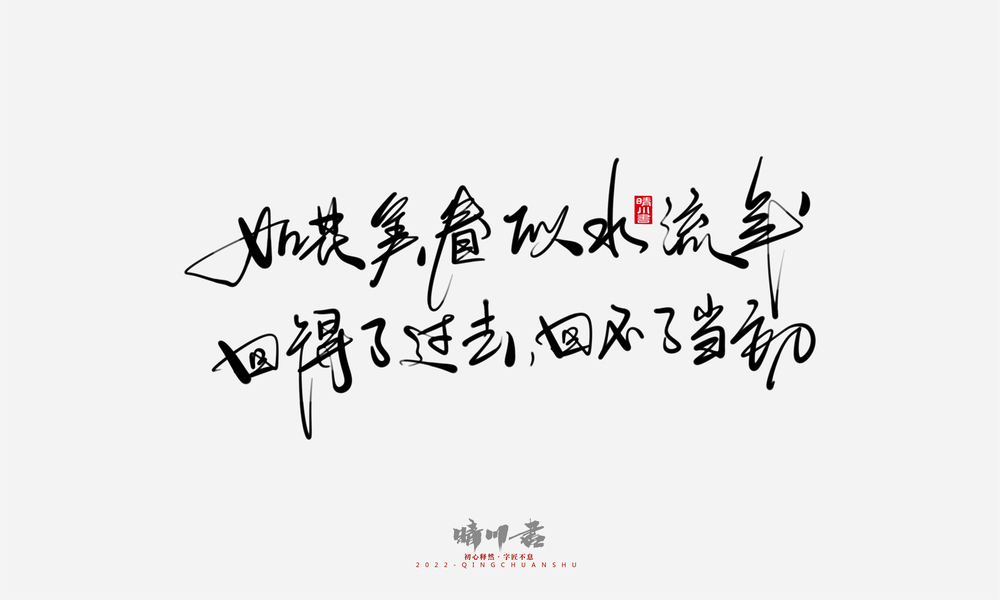 如花美眷似水流年
晴川書
回得了过去,回不了当初
晴川書
初心释然·字匠不息
2022-QINGCHUANSHU